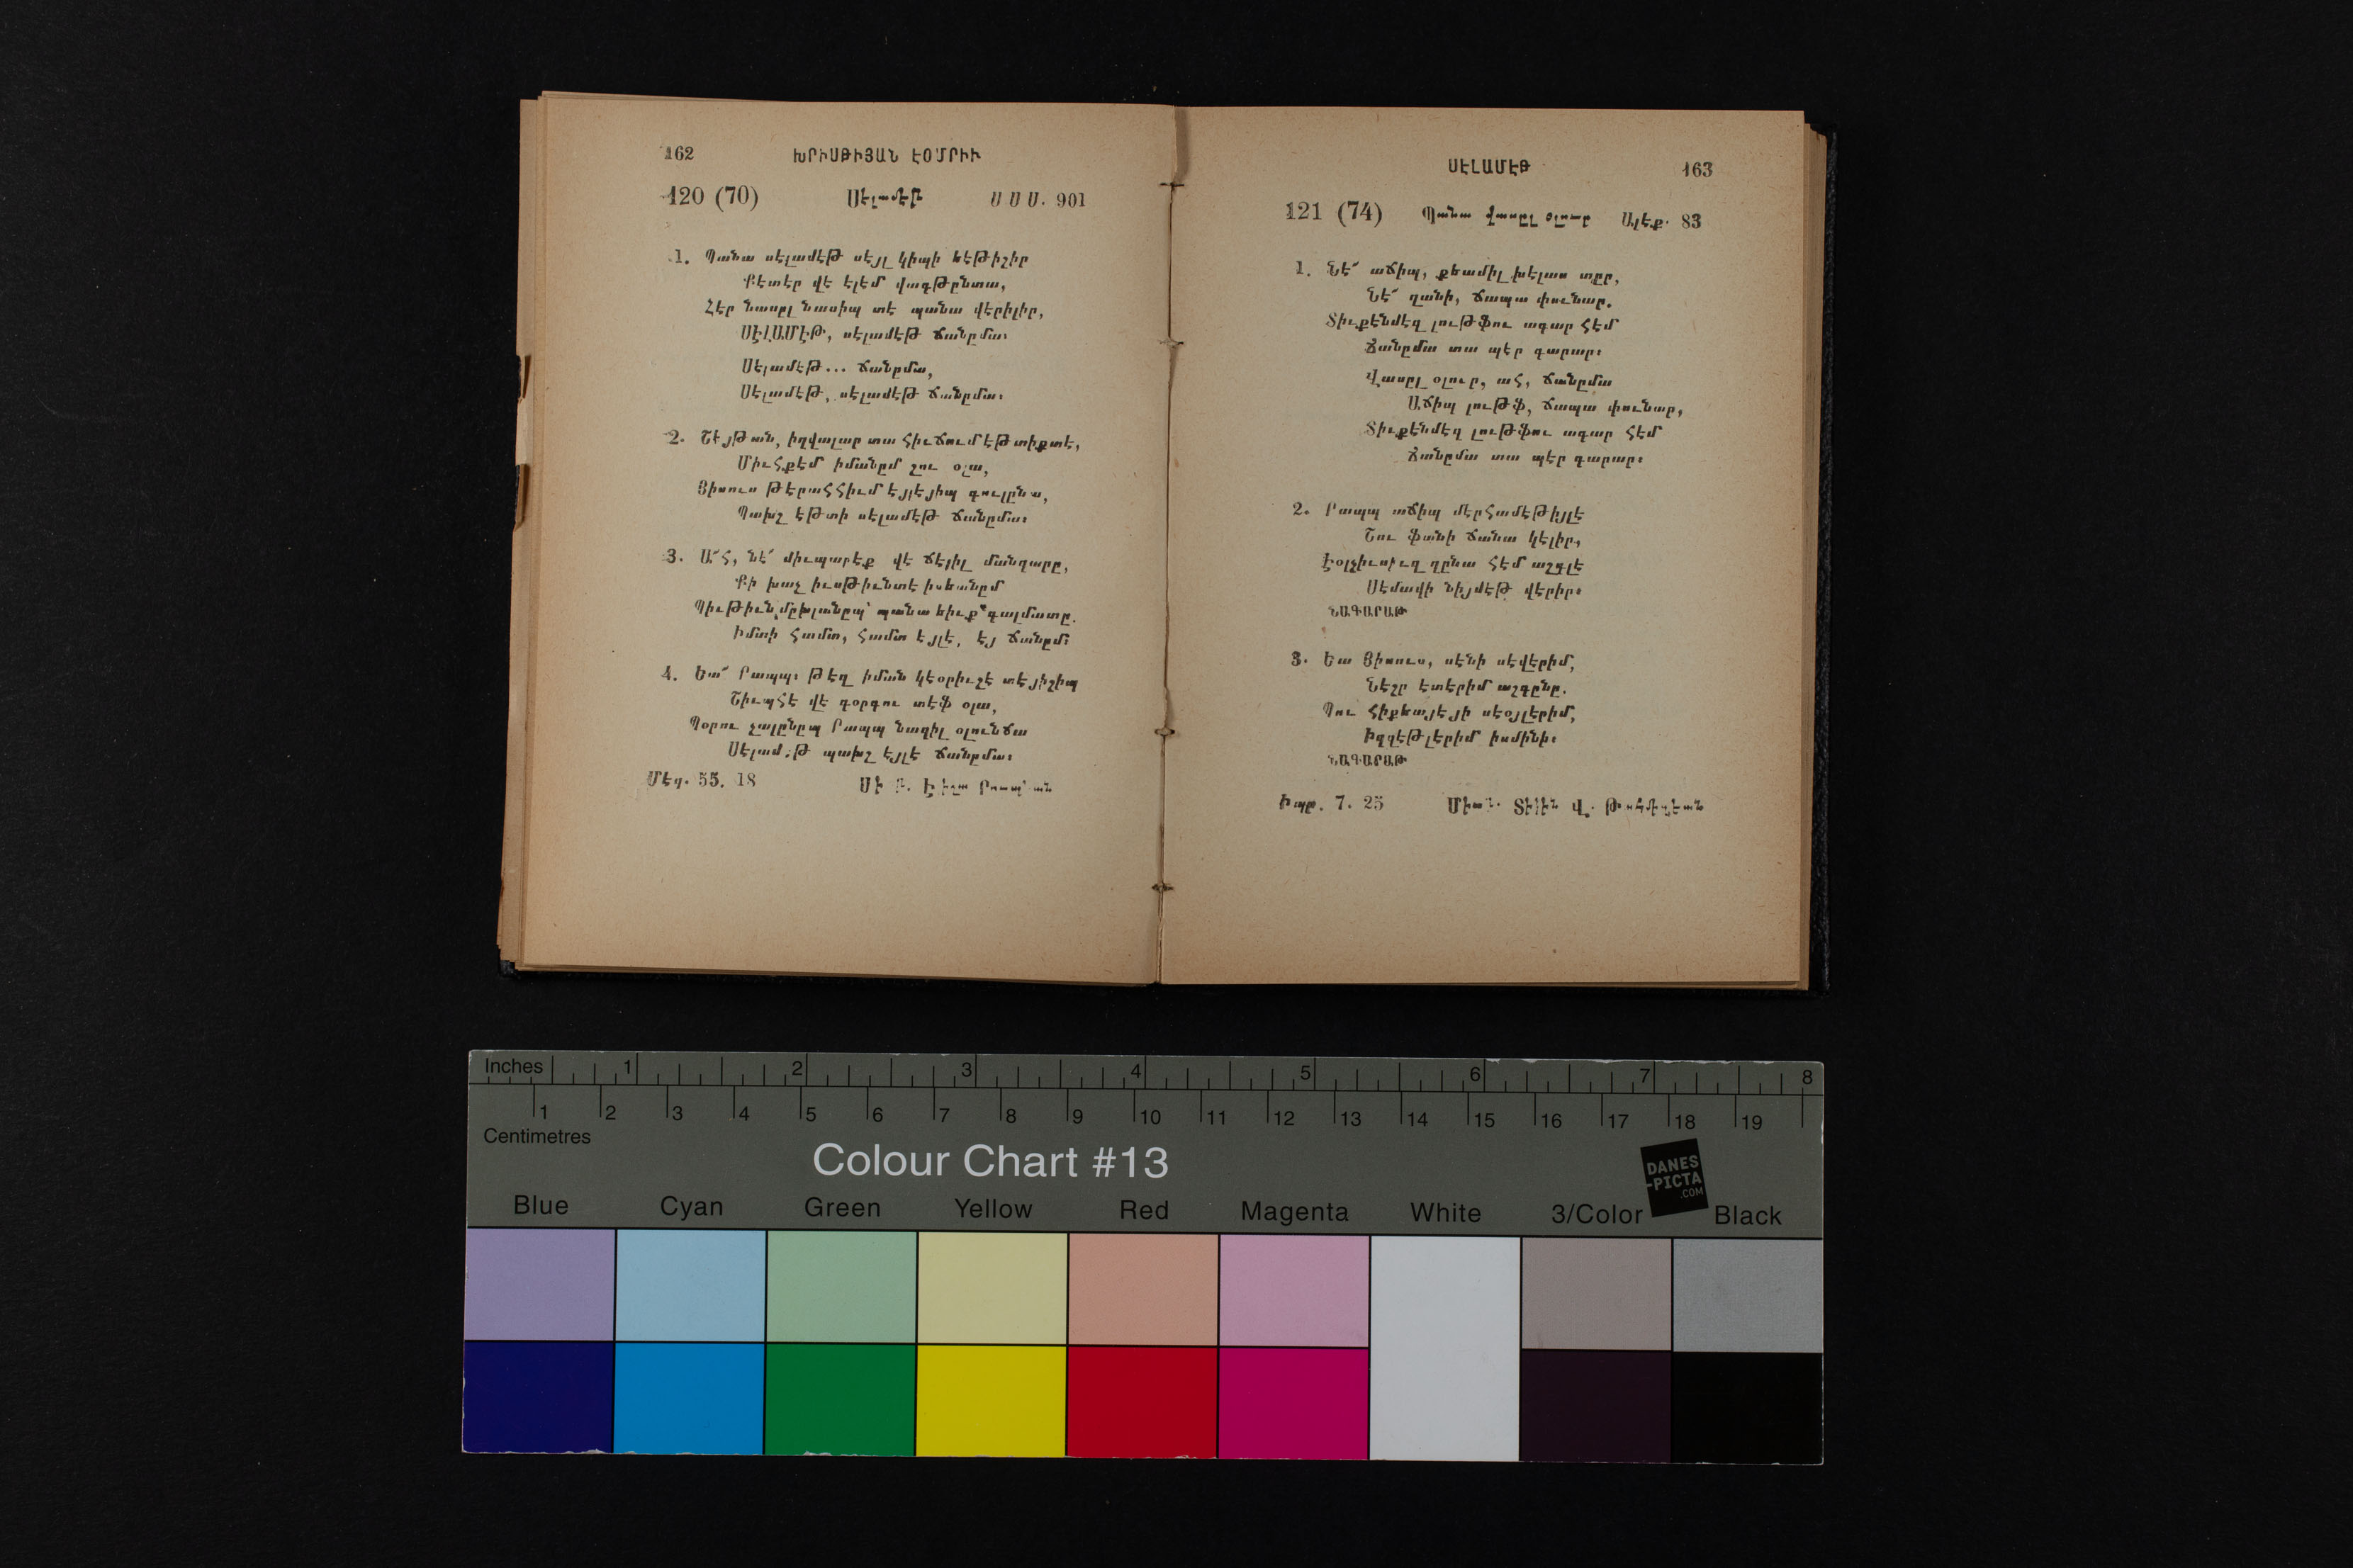 162 ԽՐԻՍԹԻՅԱՆ ԷՕՄՐԻՒ
120 (70) Սէլամէթ Ս Ս Ս. 901
1. Պանա սէլամէթ սէյլ կիպի եէթիշիր
Քէտէր վէ էլէմ վագթընտա,
Հէր նասըլ նասիպ տէ պանա վէրիլիր,
ՍԷԼԱՄԷԹ, սէլամէթ ճանըմա։
Սէլամէթ... ճանըմա,
Սէլամէթ, սէլամէթ ճանըմա։
2. Շէյթան, իղվալար տա հիւճում էթտիքտէ,
Միւհքեմ իմանըմ շու օլա,
Յիսուս թէրահհիւմ էյլէյիպ գուլընա,
Պախշ էթտի սէլամէթ ճանըմա։
3. Ա՜հ, նէ՜ միւպարէք վէ ճէլիլ մանղարը,
Քի խաչ իւսթիւնտէ իսեանըմ
Պիւթիւն մըխլանըպ՝ պանա եիւք գալմատը.
Իմտի համտ, համտ էյլէ, էյ ճանըմ։
4. Եա՜ Րապպ։ թէզ իման կեօրիւշէ տէյիշիպ
Շիւպհէ վէ գօրգու տէֆ օլա,
Պօրու չալընըպ Րապպ նազիլ օլունճա
Սէլամէթ պախշ էյլէ ճանըմա։
Մէզ. 55. 18
ՍԷԼԱՄԷԹ 163
121 (74) Պանա վասըլ օլուր Ալէք. 83
1. Նէ՜ աճիպ, քեամիլ խէլաս տըը,
Նէ՜ ղանի, ճապա փունար.
Տիւքենմէզ լութֆու ագար հէմ
Ճանըմա տա պէր գարար։
Վասըլ օլուր, ահ, ճանըմա
Աճիպ լութֆ, ճապա փունար,
Տիւքենմէզ լութֆու ագար հէմ
Ճանըմա տա պէր գարար։
2. Րապպ աճիպ մէրհամէթիյլէ
Շու ֆանի ճանա կէլիր,
Էօլչիւսիւզ ղընա հէմ աշգլէ
Սէմավի նիյմէթ վէրիր։
ՆԱԳԱՐԱԹ
3. Եա Յիսուս, սէնի սէվէրիմ,
Նէշր էտէրիմ աշգընը.
Պու հիքեայէյի սէօյլէրիմ,
Իզզէթլէրիմ իսմինի։
ՆԱԳԱՐԱԹ
Իպր. 7. 25
Inches 1 2 3 4 5 6 7 8
1 2 3 4 5 6 7 8 9 10 11 12 13 14 15 16 17 18 19
Centimetres
Colour Chart #13
DANES
-PICTA
.COM
Blue Cyan Green Yellow Red Magenta White 3/Color Black